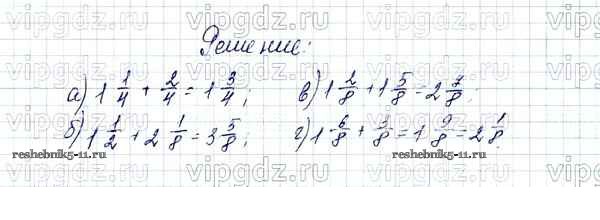 vipgdz.ru vipgdz.ru vipgdz.ru vipgdz.ru
Решение:
vipgdz.ru vipgdz.ru vipgdz.ru vipgdz.ru
а) 1 1/4 + 2/4 = 1 3/4; в) 1 2/8 + 1 5/8 = 2 7/8.
б) 1 1/2 + 2 1/8 = 3 5/8; г) 1 6/8 + 3/8 = 1 9/8 = 2 1/8
reshebnik5-11.ru reshebnik5-11.ru
vipgdz.ru vipgdz.ru vipgdz.ru vipgdz.ru